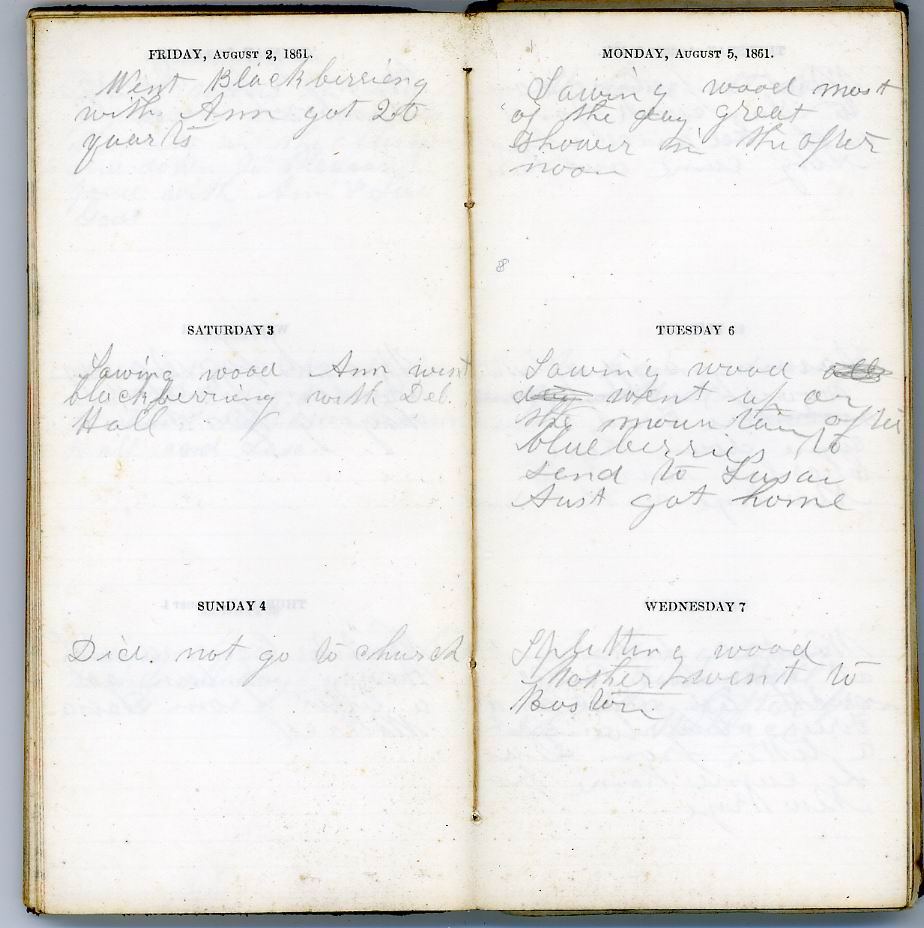 FRIDAY, AUGUST 2, 1861.
Went Blackberrieng
with Ann got 20
quarts
SATURDAY 3
Sawing wood Ann went
blackberrieng with Deb.
Hall
SUNDAY 4
Did. not go to church
MONDAY, AUGUST 5, 1861.
Sawing wood most
of the day great
shower in the after
noon
8
TUESDAY 6
Sawing wood all
day went up on
the mountain after
blueberries to
send to Susan
Aust got home
WEDNESDAY 7
Splitting wood
Mother went to
Boston